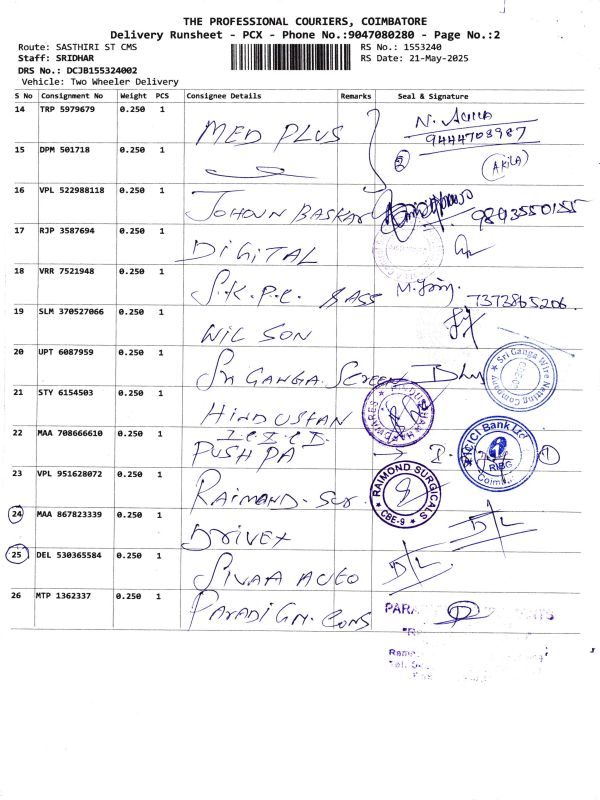 THE PROFESSIONAL COURIERS, COIMBATORE
Delivery Runsheet - PCX - Phone No.:9047080280 - Page No.:2
Route: SASTHIRI ST CMS RS No.: 1553240
Staff: SRIDHAR RS Date: 21-May-2025
DRS No.: DCJB155324002
Vehicle: Two Wheeler Delivery
S No Consignment No Weight PCS Consignee Details Remarks Seal & Signature
14 TRP 5979679 0.250 1 MED PLUS N. AKILA
9444708987
15 DPM 501718 0.250 1 2 (AKILA)
16 VPL 522988118 0.250 1 JOHOUN BASKAR 9843550155
17 RJP 3587694 0.250 1 DIGITAL
18 VRR 7521948 0.250 1 S.K.P.C. & ASS
7373865206
19 SLM 370527066 0.250 1 WILSON
20 UPT 6087959 0.250 1 Sri GANGA. SCREEN Sri Ganga Wire Netting Company
21 STY 6154503 0.250 1 HINDUSTAN HINDUSTHAN HARDWARES
I.C.I.C.I.
22 MAA 708666610 0.250 1 PUSHPA ICICI Bank Ltd RIBG 1
23 VPL 951628072 0.250 1 RAIMAND. Sur RAIMOND SURGICALS CBE-9
24 MAA 867823339 0.250 1 DRIVEX D/L
25 DEL 530365584 0.250 1 SIVAA AUTO D/L
26 MTP 1362337 0.250 1 PARADIGM. CONS